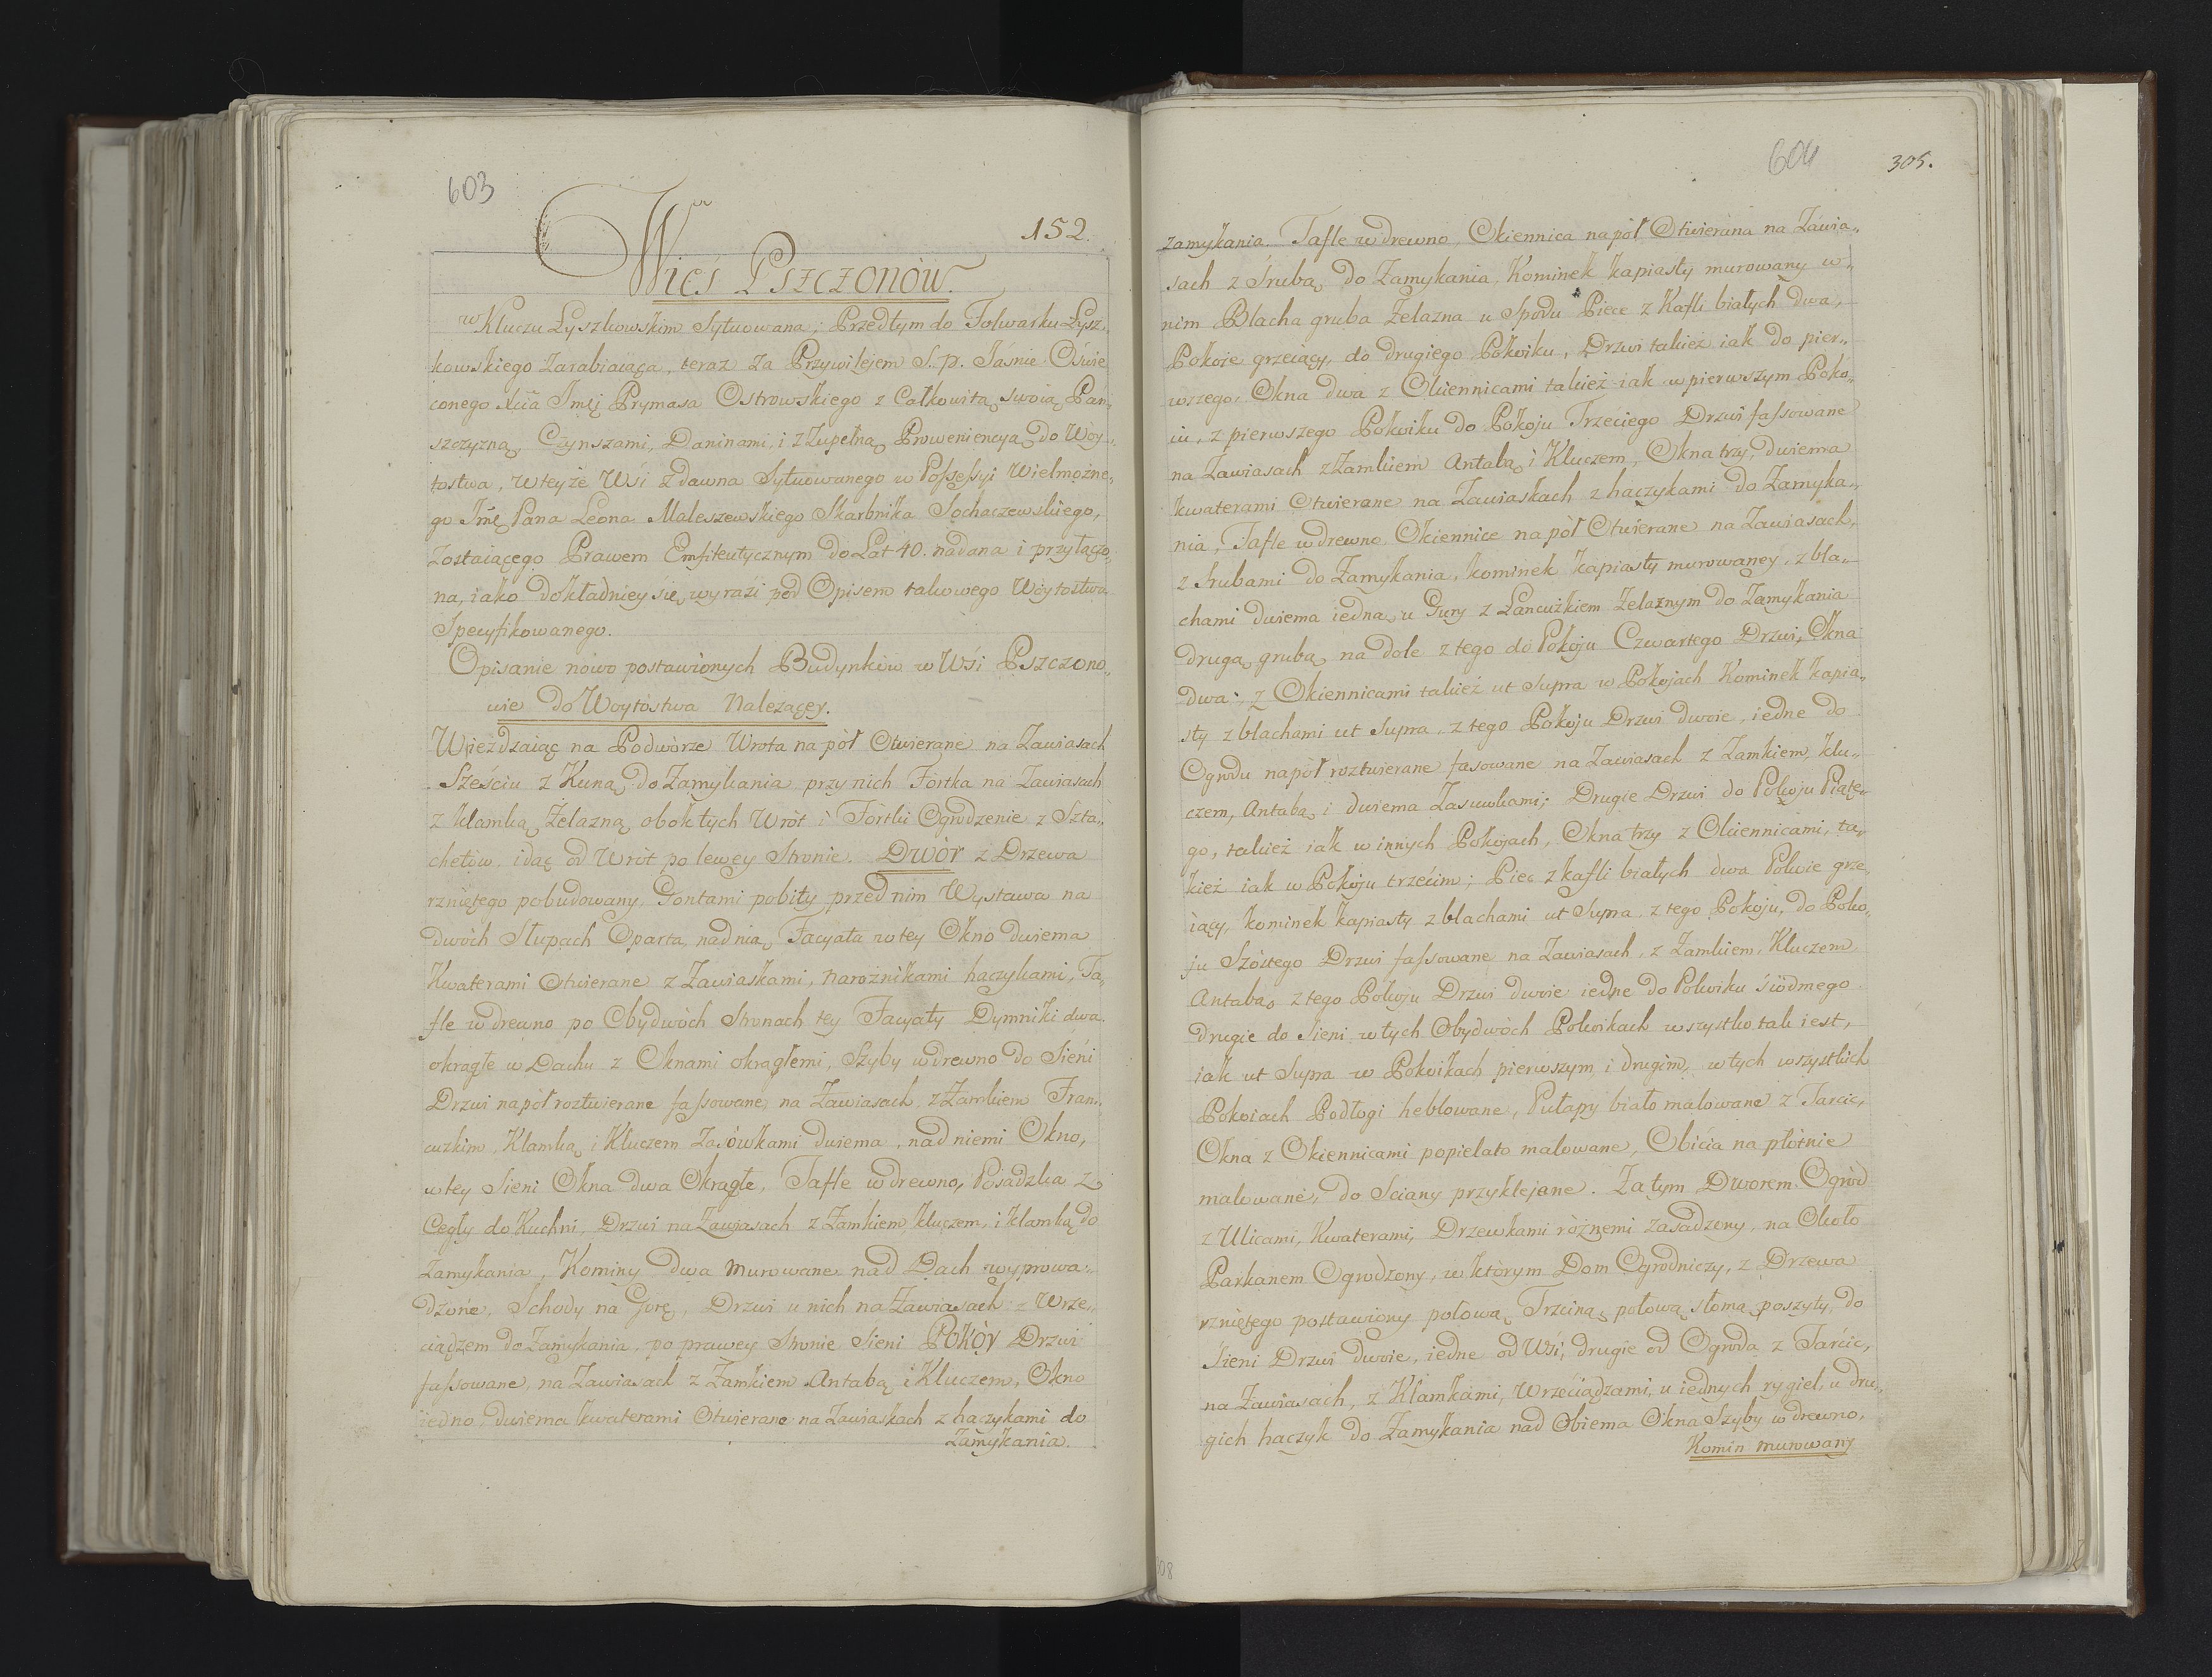 603
152.
Wieś Pszczonów.
w Kluczu Łyszkowskim Sytuowana, Przedtym do Folwarku Łysz„
kowskiego Zarabiaiąca, teraz za Przywilejem S. p. Jaśnie Oświe
conego Xcia Jmci Prymasa Ostrowskiego z Całkowitą swoią Pan„
szczyzną, Czynszami, Daninami, i z Zupełną Proweniencyą do Woy„
tostwa, w teyże Wsi z dawna Sytuowanego w Possessyi Wielmożne„
go Jmc Pana Leona Maleszewskiego Skarbnika Sochaczewskiego,
zostaiącego Prawem Emfiteutycznym do Lat 40. nadana i przyłączo„
na, iako dokładniey się wyrazi pod Opisem takowego Woytostwa
Specyfikowanego.
Opisanie nowo postawionych Budynków w Wsi Pszczono„
wie do Woytostwa Należącey.
Wieżdzaiąc na Podwórze Wrota na pół Otwierane na Zawiasach
Sześciu z Kuną do Zamykania przy nich Fórtka na Zawiasach
z klamką Żelazną obok tych Wrót i Fórtki Ogrodzenie z Szta„
chetów. idąc od Wrót po lewey Stronie. Dwór z Drzewa
rzniętego pobudowany, Gontami pobity przed nim Wystawa na
dwóch Słupach Oparta, nad nią Facyata w tey Okno dwiema
Kwaterami Otwierane z Zawiaskami, narożnikami haczykami, Ta„
fle w drewno po Obydwóch Stronach tey Facyaty Dymniki dwa
okrągłe w Dachu z Oknami okrągłemi, Szyby w drewno do Sieni
Drzwi na pół roztwierane fassowane, na Zawiasach z Zamkiem Fran„
cuzkim, Klamką i Kluczem Zasówkami dwiema, nad niemi Okno,
w tey Sieni Okna dwa Okrągłe, Tafle w drewno, Posadzka z
Cegły do Kuchni, Drzwi na Zawiasach z Zamkiem, kluczem, i klamką do
Zamykania, Kominy dwa murowane nad Dach wyprowa„
dzone, Schody na Gorę, Drzwi u nich na Zawiasach z Wrze„
ciądzem do Zamykania, po prawey Stronie Sieni Pokóy Drzwi
fassowane, na Zawiasach z Zamkiem Antabą i Kluczem, Okno
iedno, dwiema kwaterami Otwierane na Zawiaskach z haczykami do
Zamykania.
604
305.
zamykania. Tafle w drewno, Okiennica na pół Otwierana na Zawia„
sach z Śrubą do Zamykania, Kominek kapiasty murowany w„
nim Blacha gruba Żelazna u Spodu Piece z Kafli białych dwa,
Pokoie grzeiący, do drugiego Pokoiku, Drzwi takież iak do pier„
wszego. Okna dwa z Okiennicami takież iak w pierwszym Poko„
iu, z pierwszego Pokoiku do Pokoju Trzeciego Drzwi fassowane
na Zawiasach z Zamkiem Antabą i Kluczem, Okna trzy, dwiema
kwaterami Otwierane na Zawiaskach z haczykami do Zamyka„
nia, Tafle w drewno, Okiennice na pół Otwierane na Zawiasach,
z Srubami do Zamykania, kominek kapiasty murowaney, z bla„
chami dwiema iedną u Gury z Łancużkiem żelaznym do Zamykania
drugą grubą na dole z tego do Pokoju Czwartego Drzwi, Okna
dwa, z Okiennicami takież ut Supra w Pokojach Kominek kapia„
sty z blachami ut Supra, z tego Pokoju Drzwi dwoie, iedne do
Ogrodu na pół roztwierane fasowane na Zawiasach z Zamkiem, klu„
czem, Antabą, i dwiema Zasuwkami; Drugie Drzwi do Pokoju Piąte„
go, takież iak w innych Pokojach, Okna trzy z Okiennicami, ta„
kież iak w Pokoju trzecim; Piec z kafli białych dwa Pokoie grze„
iący, kominek kapiasty z blachami ut Supra, z tego Pokoju, do Poko„
ju Szóstego Drzwi fassowane na Zawiasach, z Zamkiem, Kluczem
Antabą, z tego Pokoju Drzwi dwoie iedne do Pokoiku siódmego
drugie do Sieni w tych Obydwóch Pokoikach wszystko tak iest,
iak ut Supra w Pokoikach pierwszym i drugim, w tych wszystkich
Pokoiach Podłogi heblowane, Pułapy biało malowane z Tarcic,
Okna z Okiennicami popielato malowane, Obicia na płótnie
malowane, do Sciany przyklejane. Za tym Dworem Ogród
z Ulicami, Kwaterami, Drzewkami różnemi zasadzony, na Około
Parkanem Ogrodzony, w którym Dom Ogrodniczy, z Drzewa
rzniętego postawiony połową Trzciną, połową słomą poszyty, do
Sieni Drzwi dwoie, iedne od Wsi, drugie od Ogroda z Tarcic,
na Zawiasach, z Klamkami, Wrzeciądzami, u iednych rygiel, u dru„
gich haczyk do Zamykania nad Obiema Okna Szyby w drewno.
Komin murowany